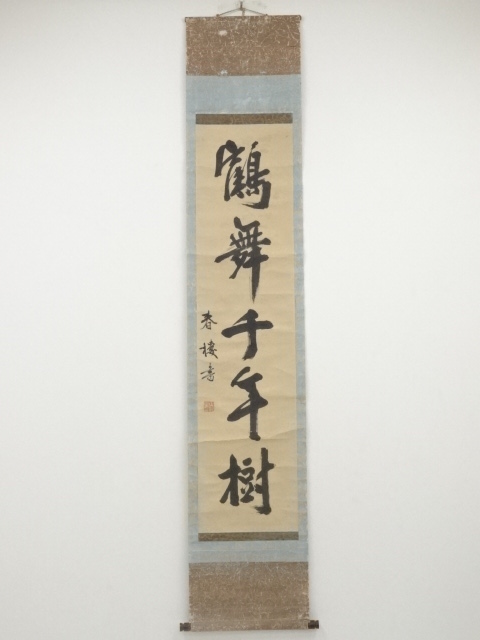 鶴舞千年樹
春棲書